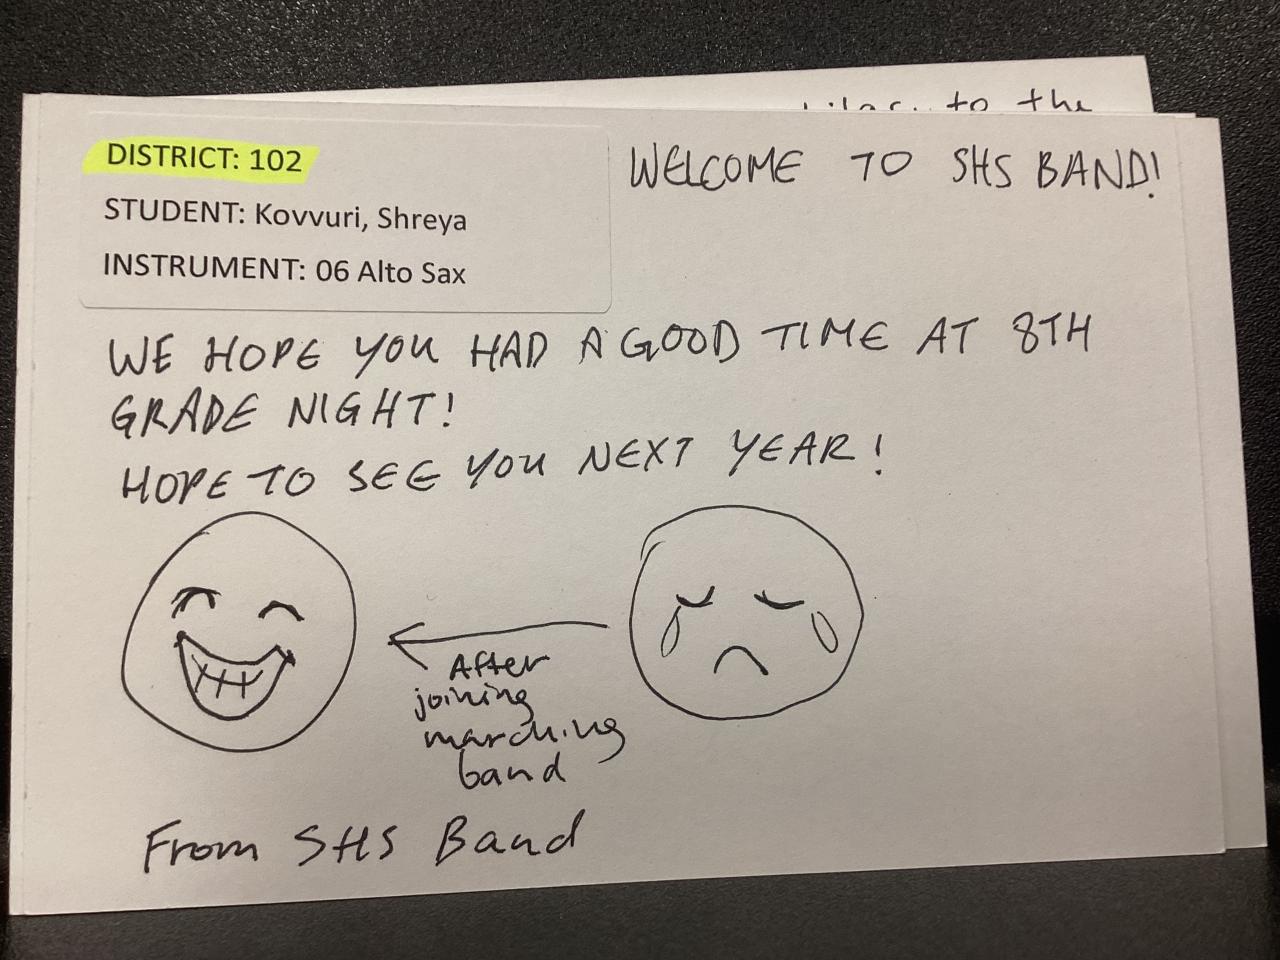 to the
DISTRICT: 102
STUDENT: Kovvuri, Shreya
INSTRUMENT: 06 Alto Sax
WELCOME TO SHS BAND!
WE HOPE YOU HAD A GOOD TIME AT 8TH
GRADE NIGHT!
HOPE TO SEE YOU NEXT YEAR!
After
joining
marching
band
From SHS Band